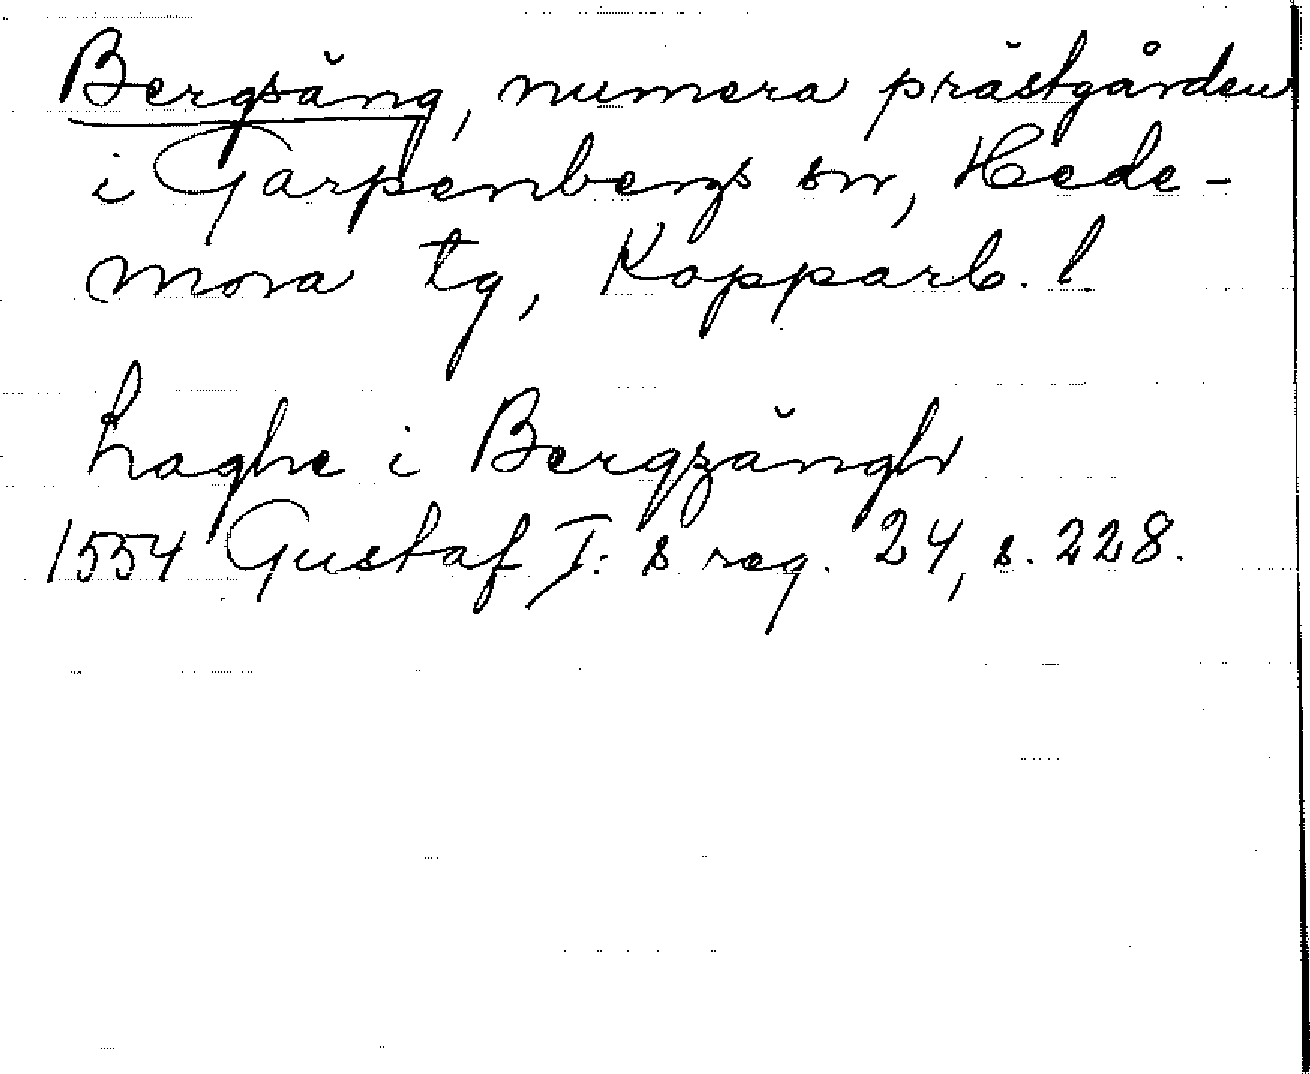 Bergsäng, numera prästgården
i Garpenbergs sn, Hede-
mora tg, Kopparb. l.
haghe i Bergzängh
1554 Gustaf I:s reg. 24, s. 228.